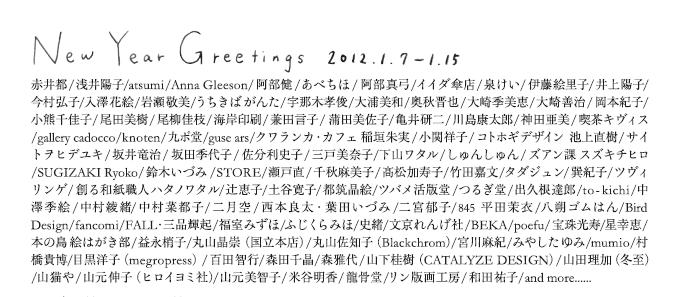 New Year Greetings 2012.1.7-1.15
赤井都/浅井陽子/atsumi/Anna Gleeson/阿部健/あべちほ/阿部真弓/イイダ傘店/泉けい/伊藤絵里子/井上陽子/
今村弘子/入澤花絵/岩瀬敬美/うちきばがんた/宇那木孝俊/大浦美和/奥秋晋也/大崎季美恵/大崎善治/岡本紀子/
小熊千佳子/尾田美樹/尾柳佳枝/海岸印刷/兼田言子/蒲田美佐子/亀井研二/川島康太郎/神田亜美/喫茶キヴィス
/gallery cadocco/knoten/九ポ堂/guse ars/クワランカ・カフェ 稲垣朱実/小関祥子/コトホギデザイン 池上直樹/サイ
トヲヒデユキ/坂井竜治/坂田季代子/佐分利史子/三戸美奈子/下山ワタル/しゅんしゅん/ズアン課 スズキチヒロ
/SUGIZAKI Ryoko/鈴木いづみ/STORE/瀬戸直/千秋麻美子/高松加寿子/竹田嘉文/タダジュン/巽紀子/ツヴィ
リンゲ/創る和紙職人ハタノワタル/辻恵子/土谷寛子/都筑晶絵/ツバメ活版堂/つるぎ堂/出久根達郎/to-kichi/中
澤季絵/中村綾緒/中村菜都子/二月空/西本良太・葉田いづみ/二宮郁子/845 平田茉衣/八朔ゴムはん/Bird
Design/fancomi/FALL・三品輝起/福室みずほ/ふじくらみほ/史緒/文京れんげ社/BEKA/poefu/宝珠光寿/星幸恵/
本の島 絵はがき部/益永梢子/丸山晶崇（国立本店）/丸山佐知子（Blackchrom）/宮川麻紀/みやしたゆみ/mumio/村
橋貴博/目黒洋子（megropress）/百田智行/森田千晶/森雅代/山下桂樹（CATALYZE DESIGN）/山田理加（冬至）
/山猫や/山元伸子（ヒロイヨミ社）/山元美智子/米谷明香/龍骨堂/リン版画工房/和田祐子/and more......